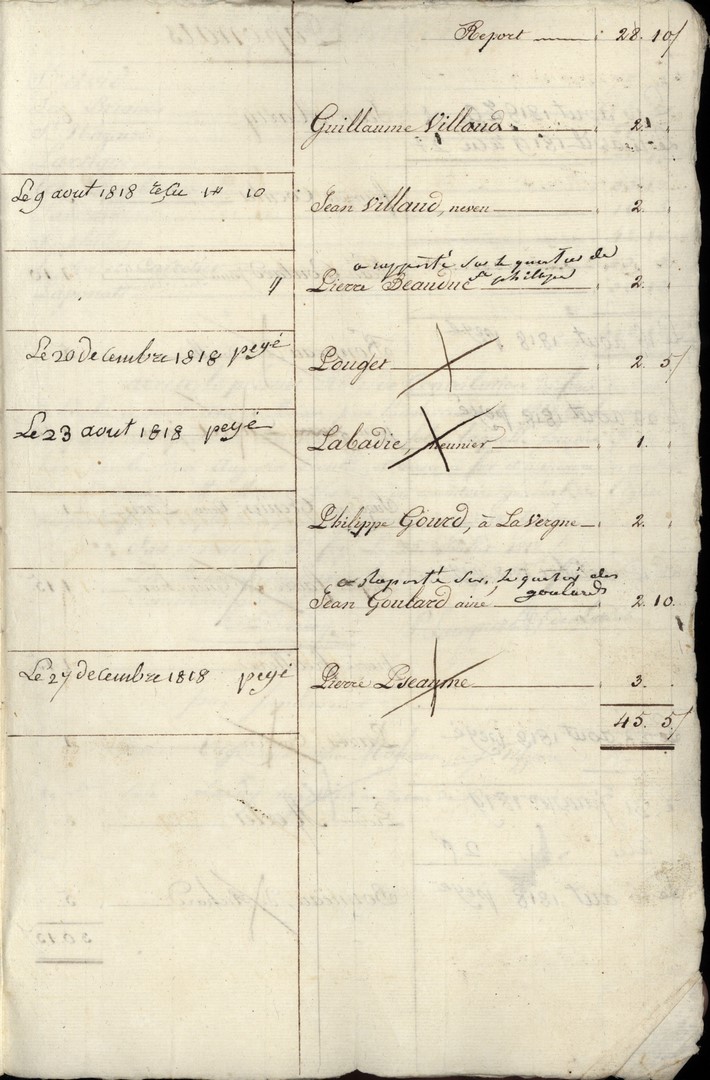 Report 28. 10/
Guillaume Villaud 2.
Le 9 aout 1818 reçu 1# 10
Jean Villaud, neveu 2.
a rapporté sur le quartier de
St philipe
" Pierre Beauduc 2.
Le 20 decembre 1818 peyé Pouget 2. 5/
Le 23 aout 1818 peyé
Labadie, meunier 1.
Philippe Gourd, à La Vergne 2.
a raporté sur le quartié des
goulards
Jean Goulard ainé 2. 10.
Le 27 decembre 1818 peyé Pierre Pseaume 3.
45. 5/